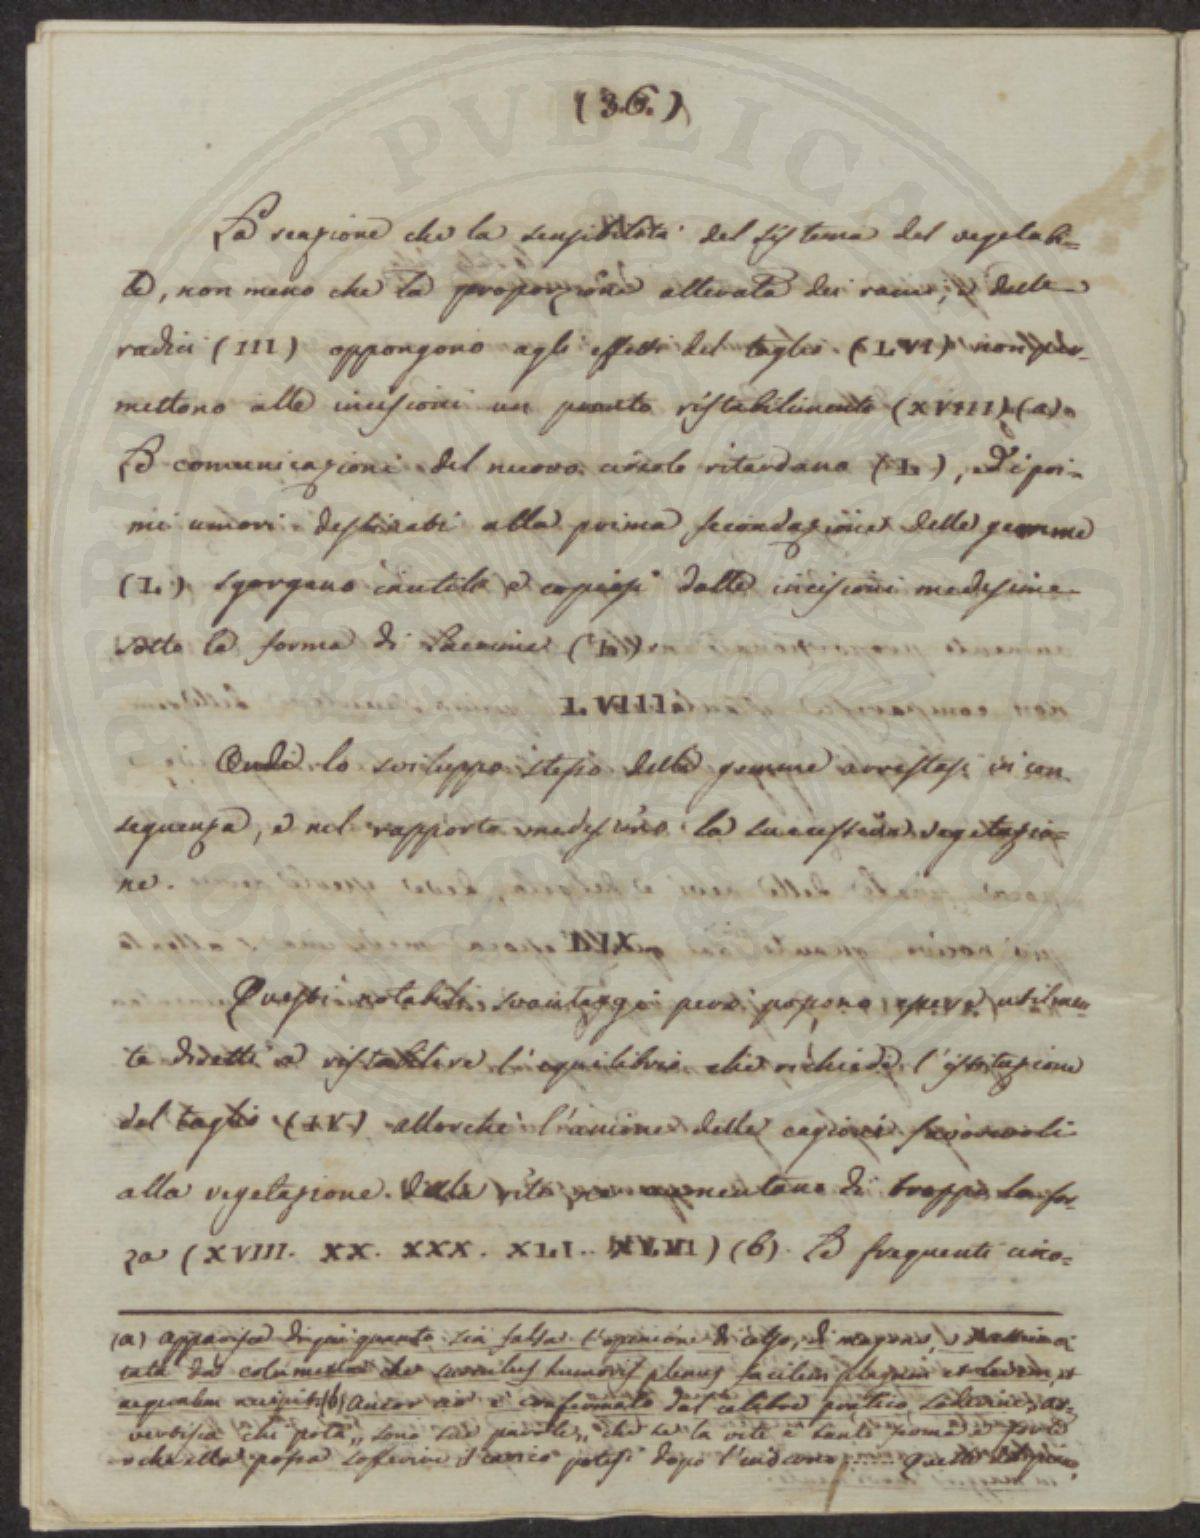 (36.)
La reazione che la sensibilità del sistema del vegetabi=
le, non meno che la proporzione alterata dei rami, e delle
radici (III) oppongono agli effetti del taglio (LVI) non per-
mettono alle incisioni un pronto ristabilimento (XVIII) (a).
Le comunicazioni del nuovo circolo ritardano (L.), ed i pri-
mi umori destinati alla prima fecondazione delle gemme
(L.) sgorgano inutili e copiosi dalle incisioni medesime
sotto la forma di Lacrime (L.)
LVIII.
Quindi lo sviluppo stesso delle gemme arrestasi in con
seguenza, e nel rapporto medesimo la successiva vegetazio=
ne.
Questi notabili svantaggi però possono essere utilmen
te diretti a ristabilire l'equilibrio che richiede l'istituzione
del taglio (IV) allorchè l'unione delle cagioni favorevoli
alla vegetazione della vite ne aumentano di troppo la for
za (XVIII. XX. XXX. XLI. XLVI) (b). Le frequenti circo=
(a) Apparisce di qui quanto sia falsa l'opinione di Celso, di Magone,
tata da Columella che surculus humoris plenus facilem plagam et levem, et
aequalem recipit. (b) Ancor ciò è confermato dal celebre pratico Soderini; av=
vertisca chi pota,, sono sue parole,, che se la vite è tanto forte
che ella possa sofferire il carico potisi dopo l'